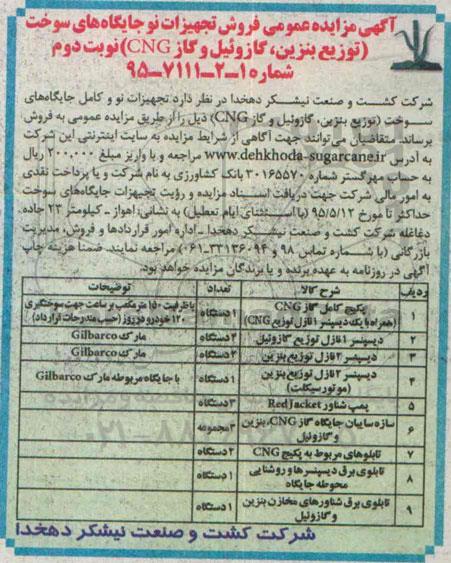 آگهی مزایده عمومی فروش تجهیزات نو جایگاه‌های سوخت
(توزیع بنزین، گازوئیل و گاز CNG) نوبت دوم
شماره ۱-۲-۷۱۱۱-۹۵
شرکت کشت و صنعت نیشکر دهخدا در نظر دارد تجهیزات نو و کامل جایگاه‌های
سوخت (توزیع بنزین، گازوئیل و گاز CNG) ذیل را از طریق مزایده عمومی به فروش
برساند. متقاضیان می‌توانند جهت آگاهی از شرایط مزایده به سایت اینترنتی این شرکت
به آدرس www.dehkhoda-sugarcane.ir مراجعه و با واریز مبلغ ۲۰۰,۰۰۰ ریال
به حساب مهرگستر شماره ۳۰۱۶۵۵۷۰ بانک کشاورزی به نام شرکت و یا پرداخت نقدی
به امور مالی شرکت جهت دریافت اسناد مزایده و رؤیت تجهیزات جایگاه‌های سوخت
حداکثر تا مورخ ۹۵/۵/۱۲ (با استثنای ایام تعطیل) به نشانی: اهواز ـ کیلومتر ۲۳ جاده
دغاغله شرکت کشت و صنعت نیشکر دهخدا ـ اداره امور قراردادها و فروش، مدیریت
بازرگانی (با شماره تماس ۹۸ و ۳۳۱۳۶۰۹۴-۰۶۱) مراجعه نمایند. ضمناً هزینه چاپ
آگهی در روزنامه به عهده برنده و یا برندگان مزایده خواهد بود.
ردیف شرح کالا تعداد توضیحات
۱ پکیج کامل گاز CNG (همراه با یک دیسپنسر ۱ نازل توزیع CNG) ۱ دستگاه با ظرفیت ۱۵۰ متر مکعب بر ساعت جهت سوختگیری ۱۲۰ خودرو در روز (حسب مندرجات قرارداد)
۲ دیسپنسر ۱ نازل توزیع گازوئیل ۲ دستگاه مارک Gilbarco
۳ دیسپنسر ۲ نازل توزیع بنزین ۲ دستگاه مارک Gilbarco
۴ دیسپنسر ۲ نازل توزیع بنزین (موتور سیکلت) ۱ دستگاه با جایگاه مربوطه مارک Gilbarco
۵ پمپ شناور Red Jacket ۳ دستگاه
۶ سازه سایبان جایگاه گاز CNG، بنزین و گازوئیل ۳ مجموعه
۷ تابلوهای مربوط به پکیج CNG ۲ دستگاه
۸ تابلوی برق دیسپنسرها و روشنایی محوطه جایگاه ۱ دستگاه
۹ تابلوی برق شناورهای مخازن بنزین و گازوئیل ۱ دستگاه
شرکت کشت و صنعت نیشکر دهخدا